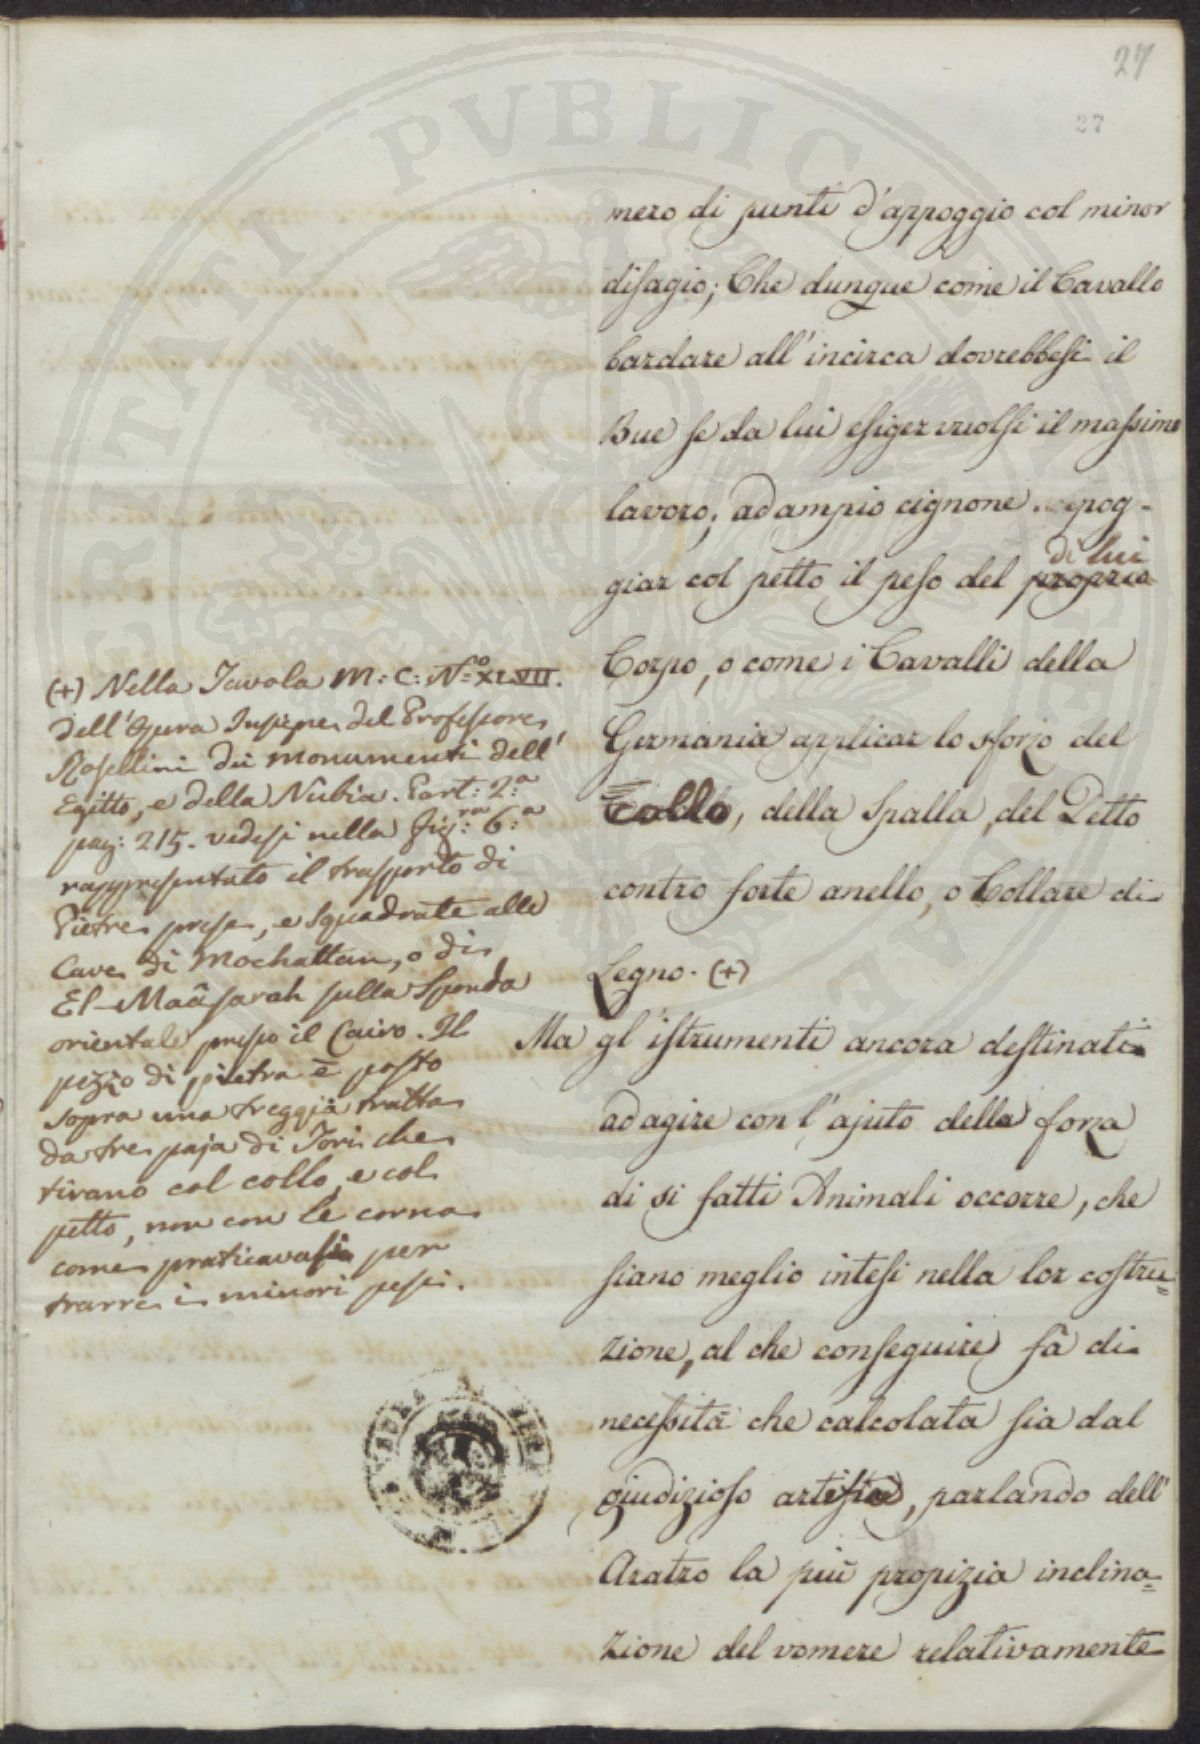 27
27
mero di punti d'appoggio col minor
disagio; Che dunque come il Cavallo
bardare all'incirca dovrebbesi il
Bue se da lui esiger vuolsi il massimo
lavoro; ad ampio cignone apog-
giar col petto il peso del proprio di lui
Corpo, o come i Cavalli della
Germania applicar lo sforzo del
Collo, della Spalla, del Petto
contro forte anello, o Collare di
Legno. (+)
Ma gl'istrumenti ancora destinati
ad agire con l'ajuto della forza
di si fatti Animali occorre, che
siano meglio intesi nella lor costru=
zione, al che conseguire fà di
necessità che calcolata sia dal
giudizioso artista, parlando dell'
Aratro la più propizia inclina=
zione del vomere relativamente
(+) Nella Tavola M: C: N.º XLVII.
dell'Opera Insigne del Professore
Rosellini dei Monumenti dell'
Egitto, e della Nubia. Part: 2.ª
pag: 215. vedesi nella fig:ra 6.ª
rappresentato il trasporto di
Pietre prese, e squadrate alle
Cave di Mochattan, o di
El-Maâsarah sulla Sponda
orientale presso il Cairo. Il
pezzo di pietra è posto
sopra una treggia tratta
da tre paja di Tori che
tirano col collo, e col
petto, non con le corna
come praticavasi per
trarre i minori pesi.